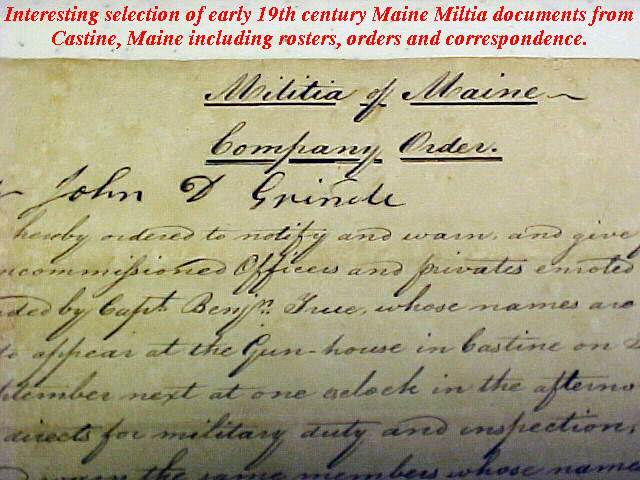 Interesting selection of early 19th century Maine Miltia documents from
Castine, Maine including rosters, orders and correspondence.
Militia of Maine
Company Order.
John D Grindle
hereby ordered to notify and warn, and give
ncommissioned Officers and privates enroled
ded by Capt. Benjn. True, whose names are
to appear at the Gun-house in Castine on
ptember next at one oclock in the afterno
directs for military duty and inspection,
warn the same members whose name